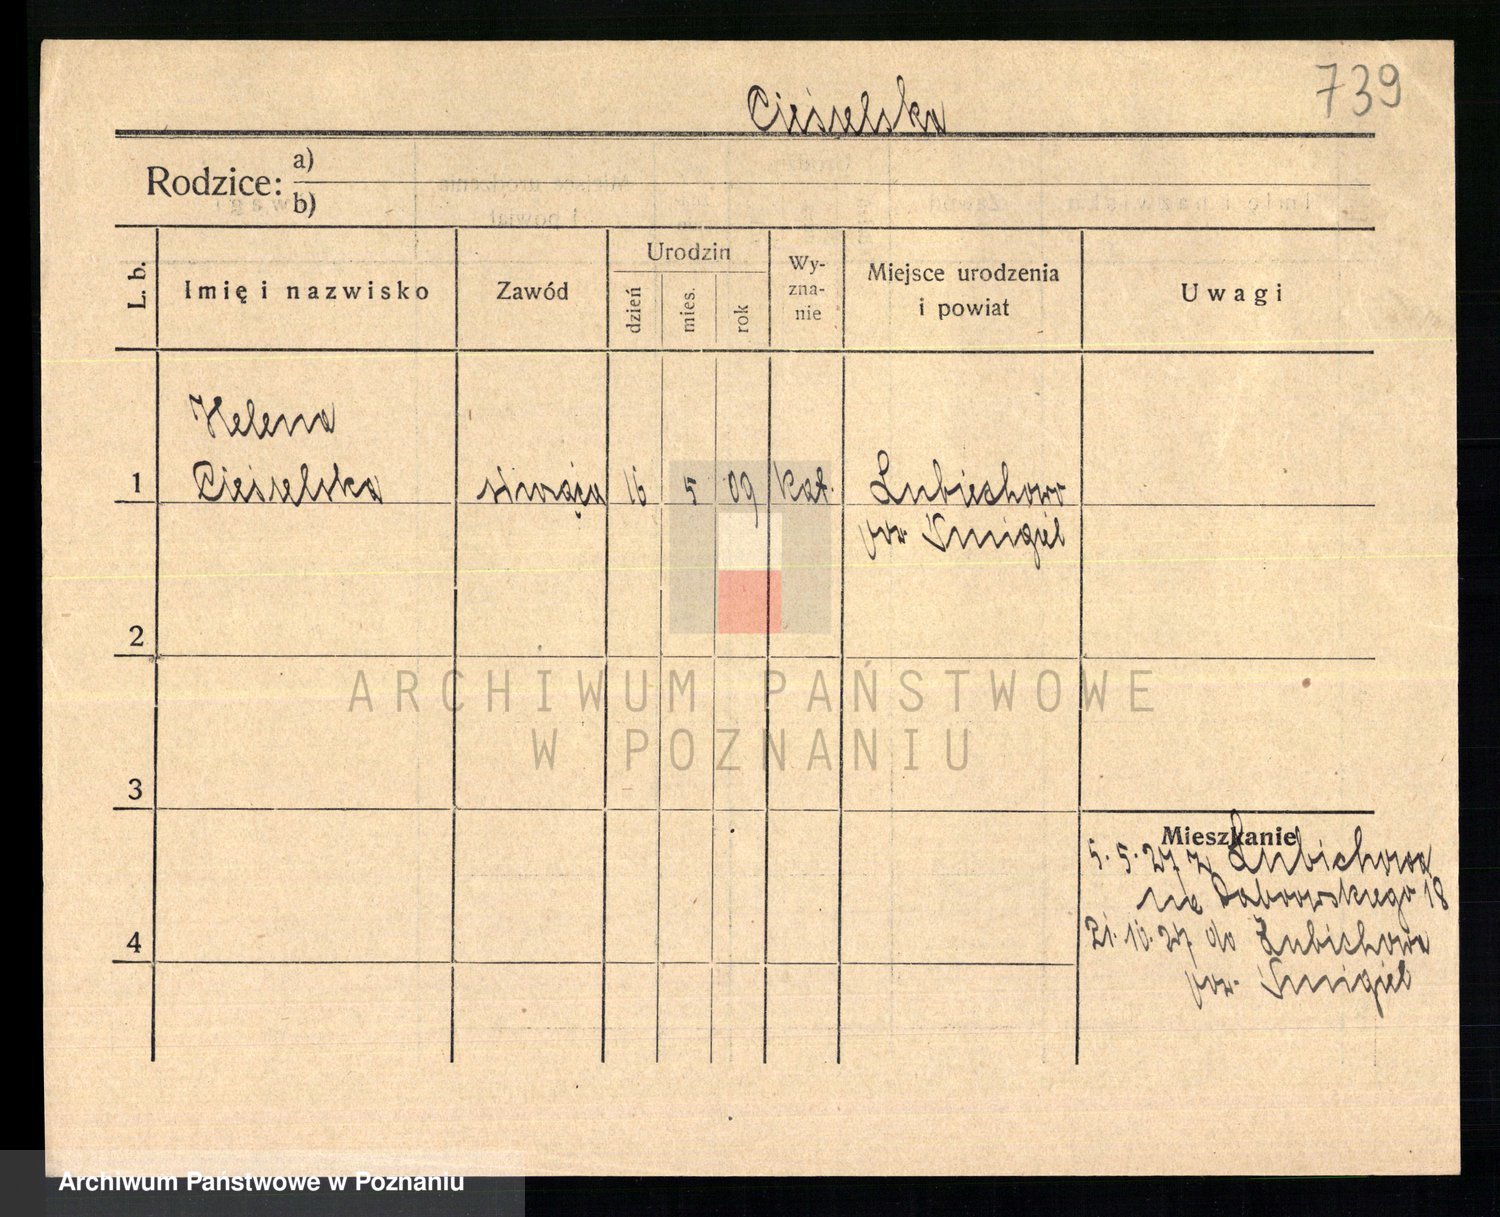 739
Ciesielska
Rodzice: a)
b)
L. b. Imię i nazwisko Zawód Urodzin dzień mies. rok Wy-zna-nie Miejsce urodzenia i powiat Uwagi
Helena
1 Ciesielska służąca 16 5 09 kat. Lubiechowo
pow. Śmigiel
2
ARCHIWUM PAŃSTWOWE
W POZNANIU
3
Mieszkanie
5. 5. 27 z Lubichowa
na Dąbrowskiego 18
21. 10. 27 do Lubichowa
pow. Śmigiel
4
Archiwum Państwowe w Poznaniu